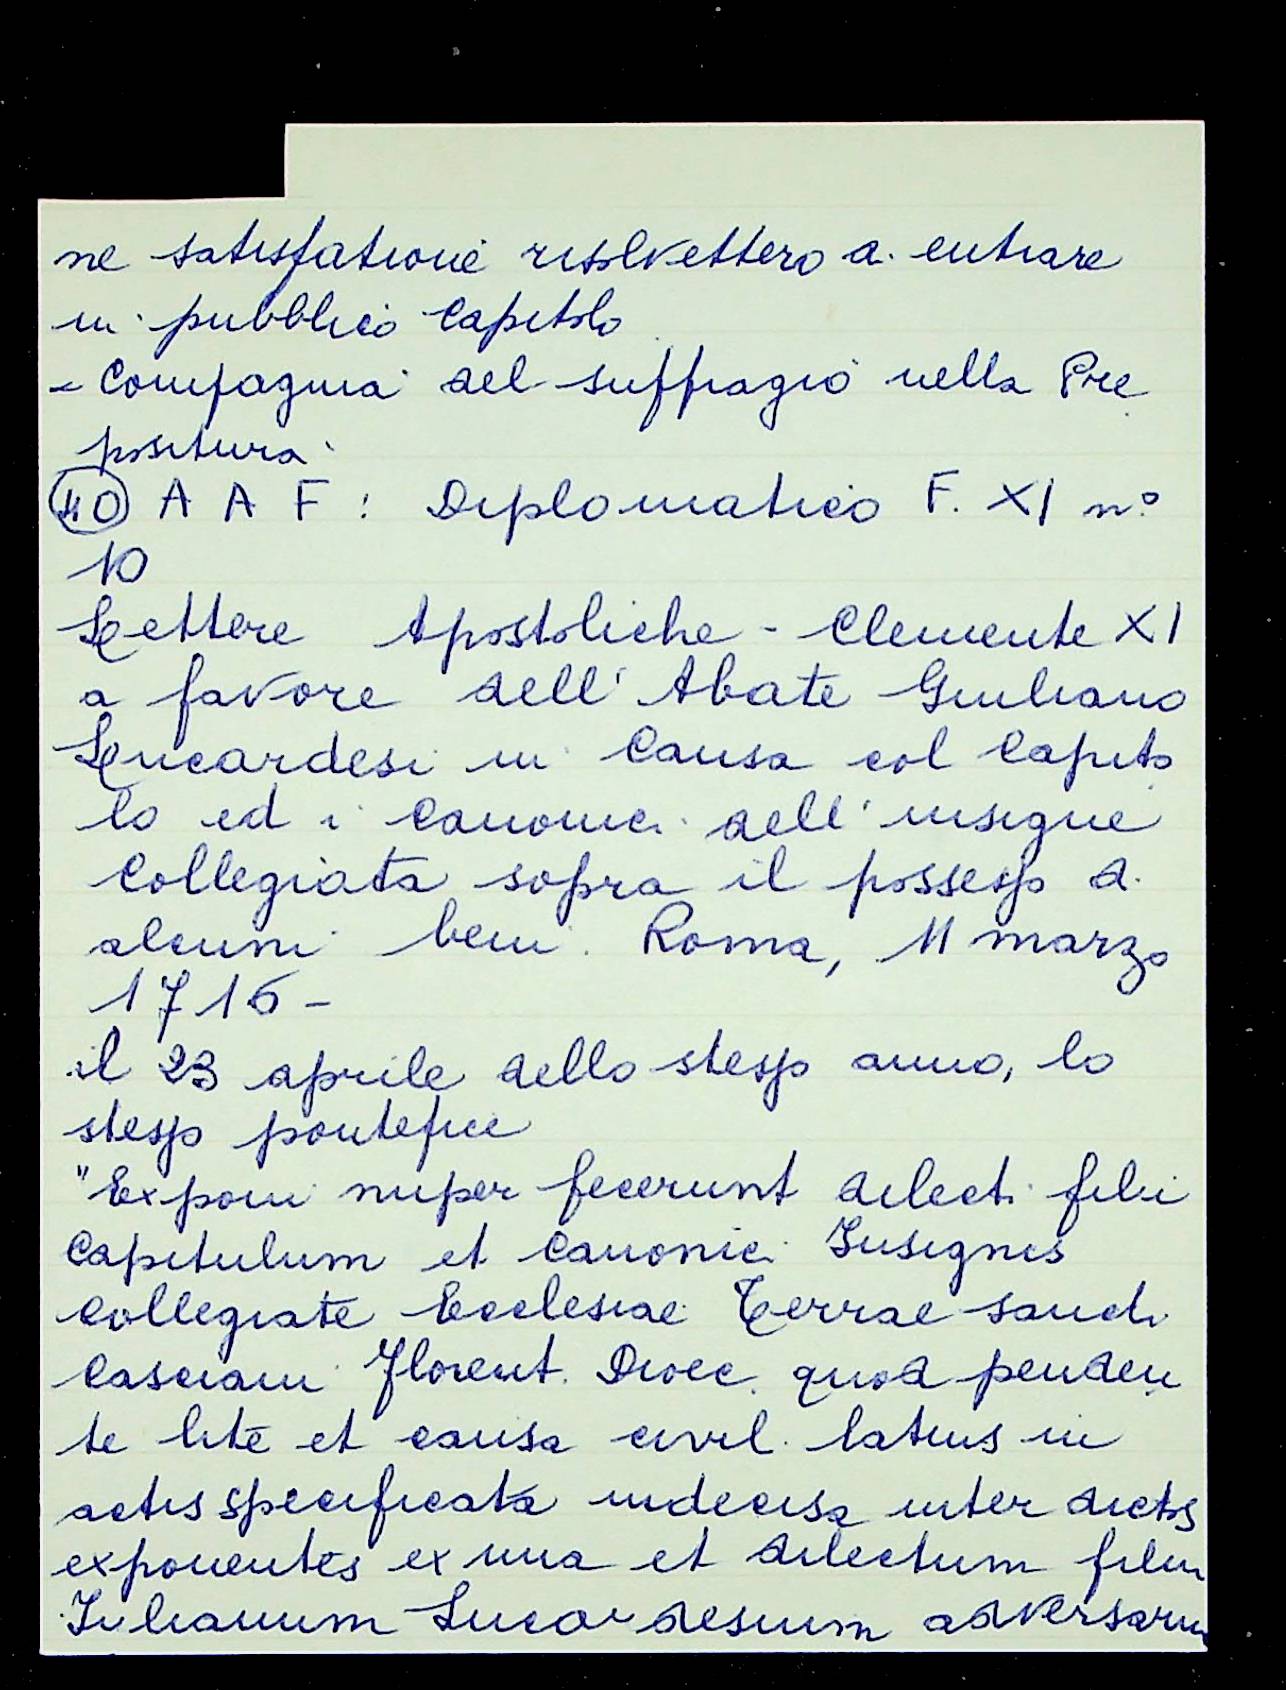 ne satisfatione risolvettero di entrare
in pubblico Capitolo
- Compagnia del suffragio nella Pre
positura
40 A A F : Diplomatico F. XI n°
10
Lettere Apostoliche - Clemente XI
a favore dell' Abate Giuliano
Lucardesi in Causa col Capito
lo ed i canonici dell' insigne
Collegiata sopra il possesso di
alcuni beni. Roma, 11 marzo
1716 -
il 23 aprile dello stesso anno, lo
stesso pontefice
"Exponi nuper fecerunt dilecti filii
Capitulum et Canonici Insignis
Collegiate Ecclesiae Terrae sancti
Casciani Florent. Dioec. quod penden
te lite et causa civil. latius in
actis specificata indecisa inter dictos
exponentes ex una et dilectum filiu
Iulianum Lucardesium adversariu